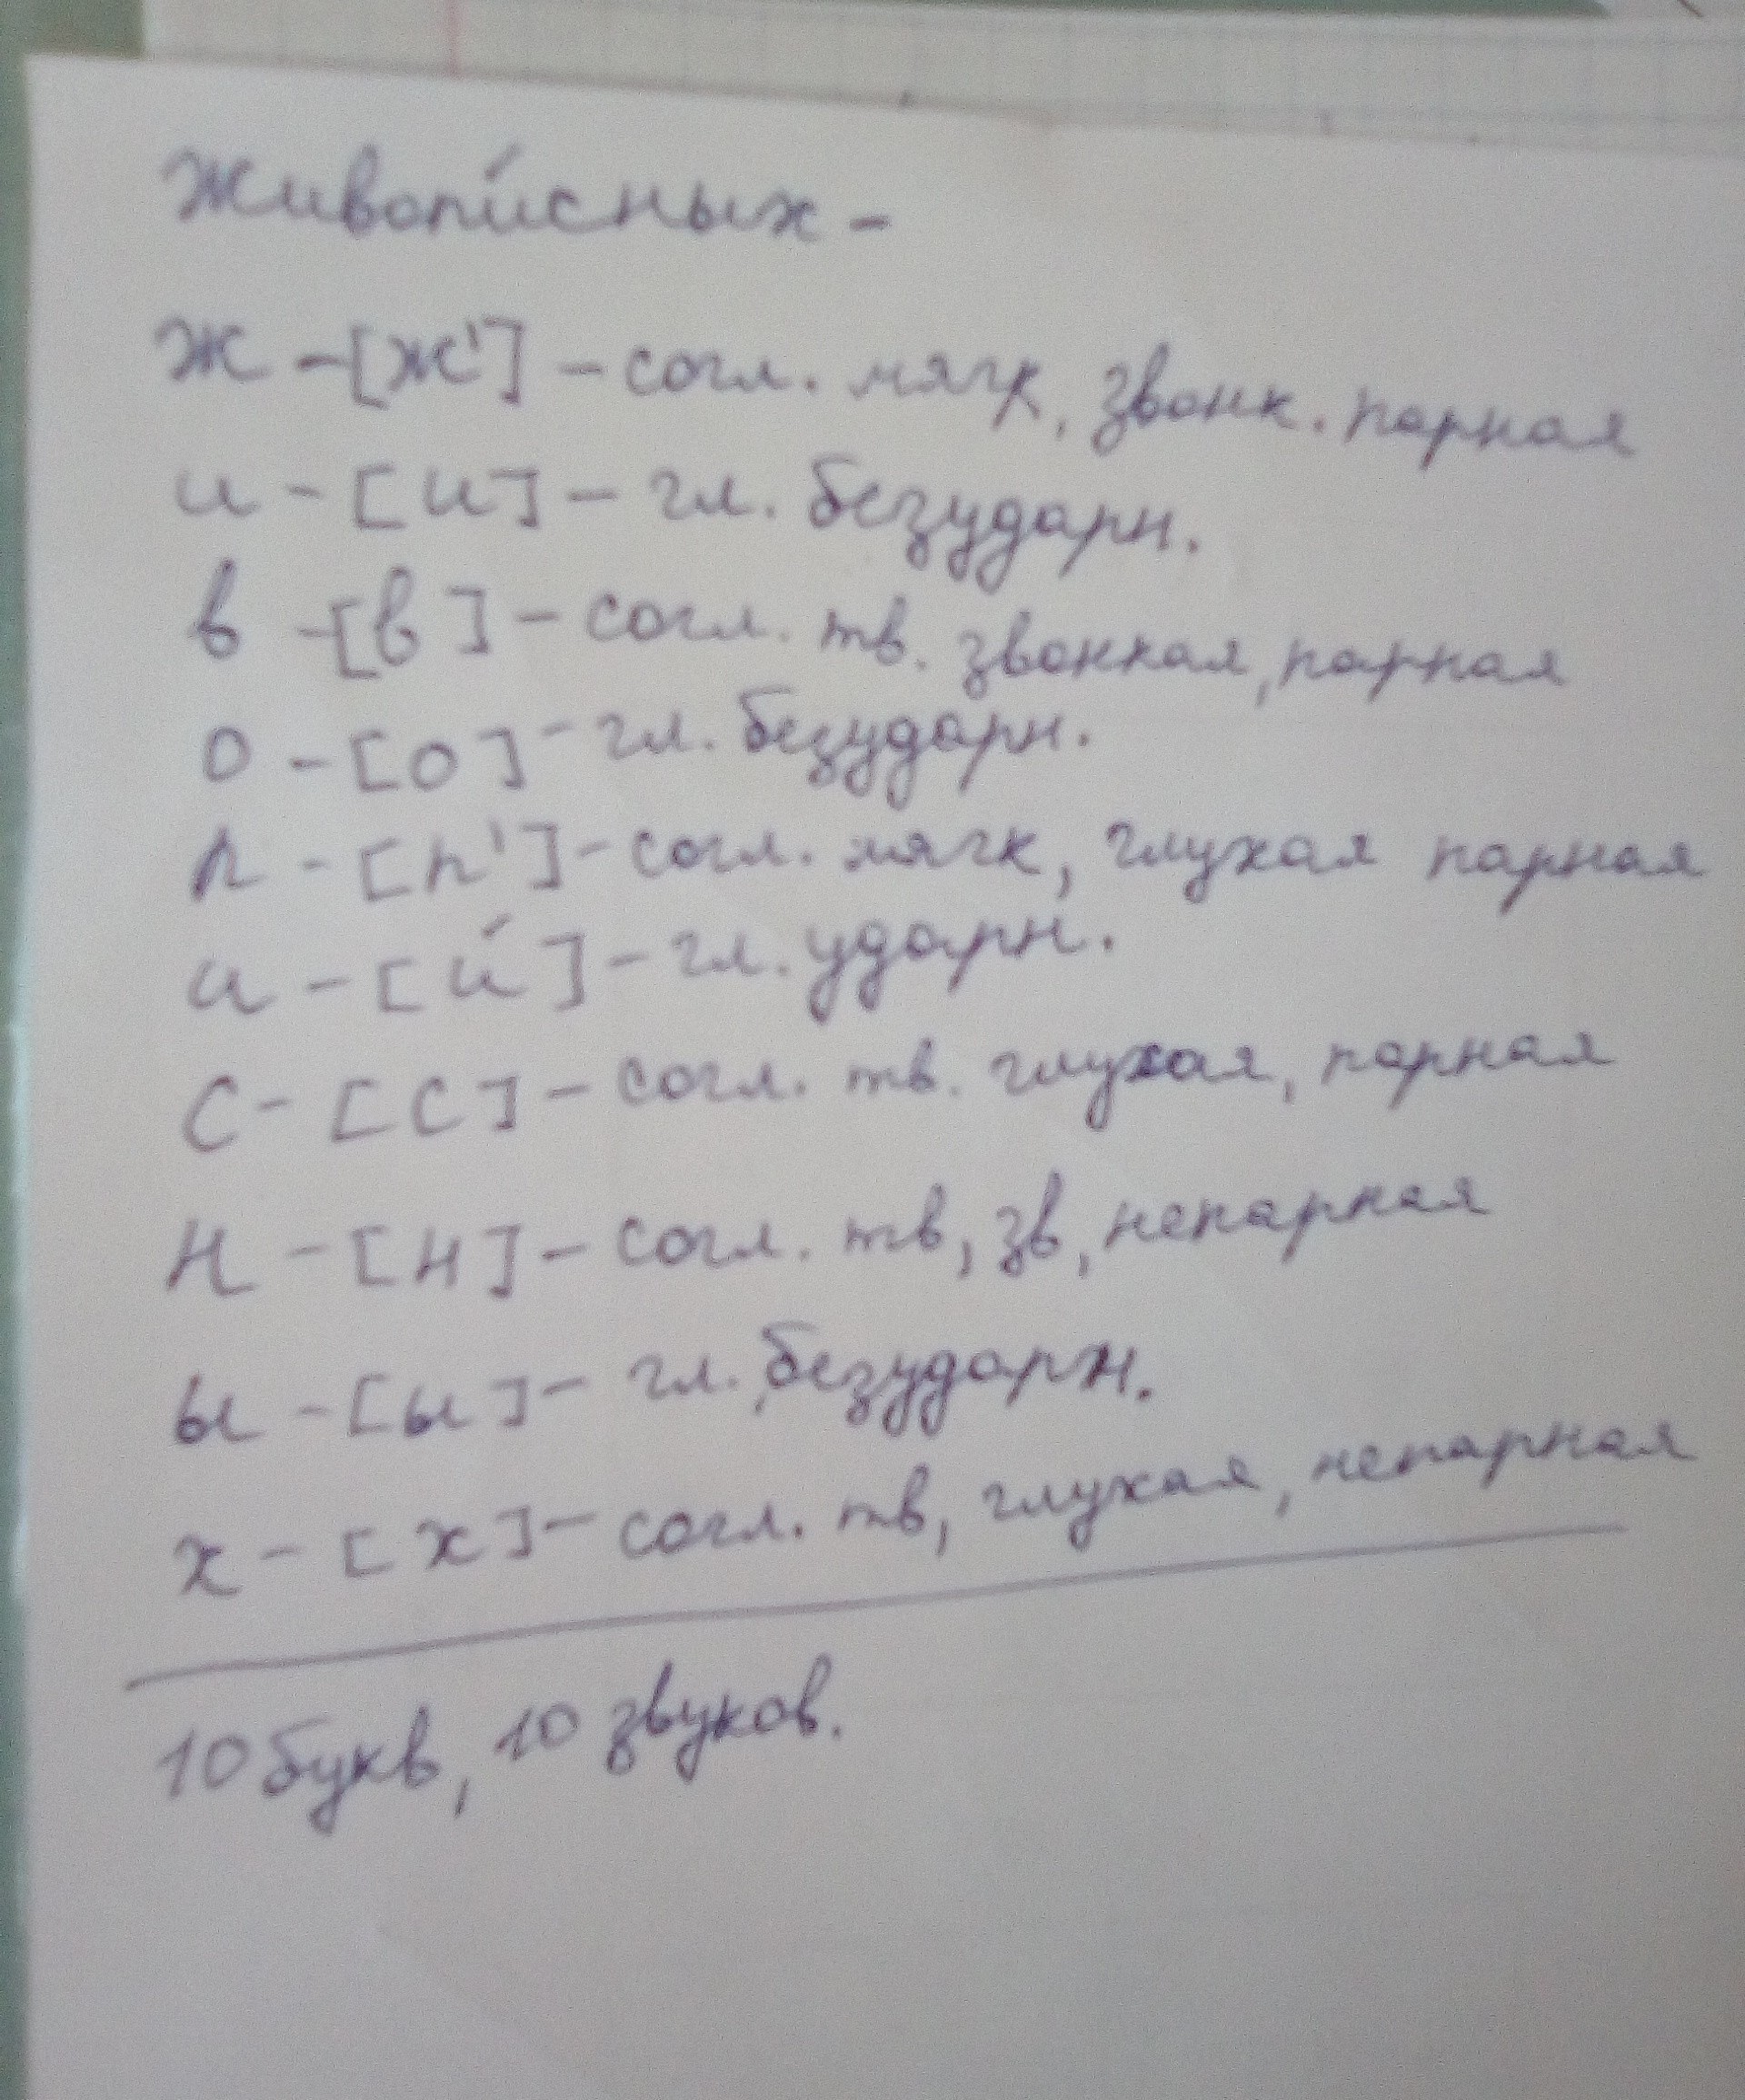 Живопи́сных -
Ж -[ж'] - согл. мягк, звонк. парная
и - [и] - гл. безударн.
в -[в] - согл. тв. звонкая, парная
о - [о] - гл. безударн.
п - [п'] - согл. мягк, глухая парная
и - [и́] - гл. ударн.
с - [с] - согл. тв. глухая, парная
н - [н] - согл. тв, зв, непарная
ы - [ы] - гл. безударн.
х - [х] - согл. тв, глухая, непарная
10 букв, 10 звуков.